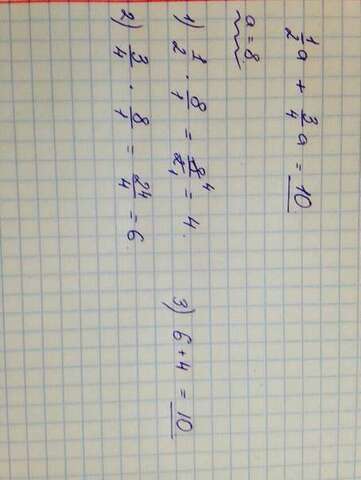 1/2 a + 3/4 a = 10
a = 8
1) 1/2 · 8/1 = 8/2 = 4.
2) 3/4 · 8/1 = 24/4 = 6.
3) 6 + 4 = 10